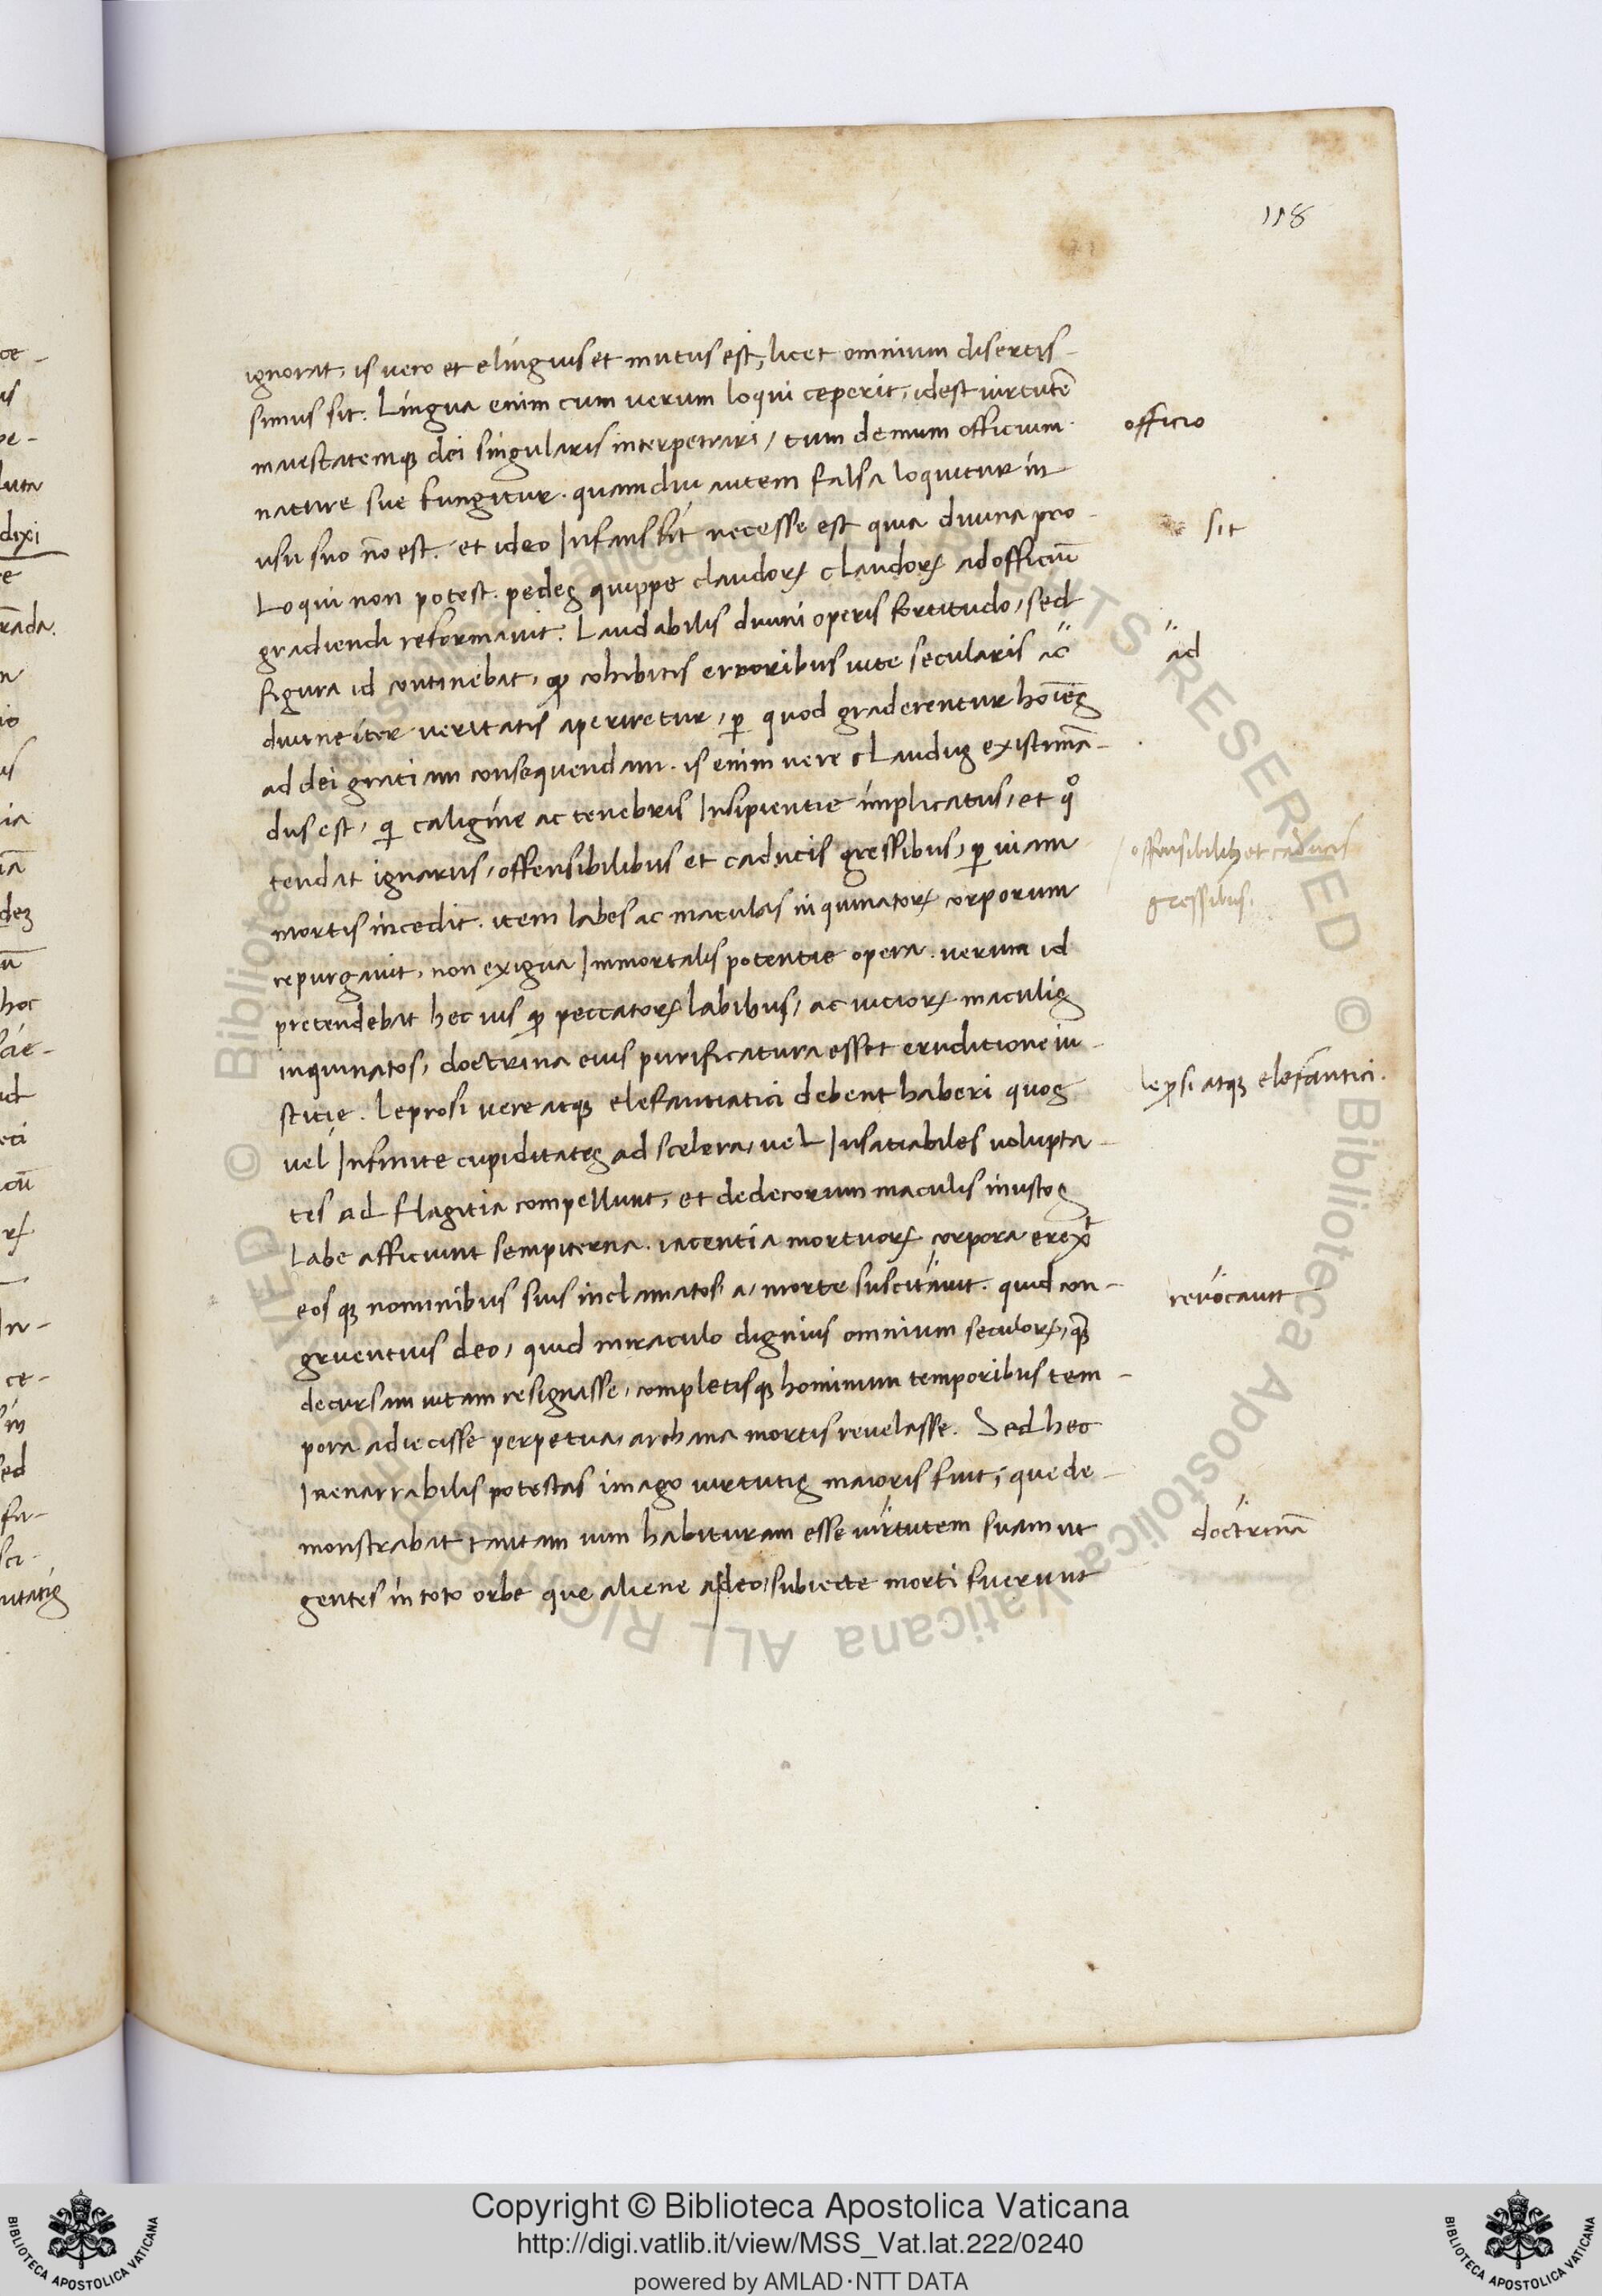 118
ignorat, is vero et elinguis et mutus est, licet omnium disertis-
simus sit. Lingua enim cum verum loqui ceperit, idest virtutē
maiestatemq; dei singularis interpetrari, tum demum officium
officio
nature sue fungitur. quamdiu autem falsa loquitur in
usu suo nō est. et ideo Infans fit necesse est quia divina pro-
sit
Loqui non potest. pedes quippe claudoꝝ claudoꝝ ad officiū
gradiendi reformavit. Laudabilis divini operis fortitudo, sed
figura id continebat, ꝙ cohibitis erroribus vite secularis ac
ad
divine iter veritatis aperiretur, ꝑ quod graderentur hoīes
ad dei gratiam consequendam. is enim vere claudus existimā-
dus est, qi caligine ac tenebris Insipientie implicatus, et qͦ
tendat ignarus, offensibilibus et caducis gressibus, ꝑ viam
offensibilibꝫ et caducis
gressibus.
mortis incedit. item labes ac maculas inquinatoꝝ corporum
repurgavit, non exigua Immortalis potentie opera. verum id
pretendebat hec vis ꝙ peccatoꝝ labibus, ac vicioꝝ maculis
inquinatos, doctrina eius purificatura esset eruditione iu-
sticie. Leprosi vere atq; elefantiatici debent haberi quos
lepsi atq; elefantici.
vel Infinite cupiditates ad scelera, vel Insatiabiles volupta-
tes ad flagitia compellunt, et dedecorum maculis inustos
Labe afficiunt sempiterna. iacentia mortuoꝝ corpora erexͭ
eos q; nominibus suis inclamatos a, morte suscitavit. quid con-
revocavit
gruentius deo, quid miraculo dignius omnium seculoꝝ, q̄
decursam vitam resignasse, completisq; hominum temporibus tem-
pora adiecisse perpetua, archana mortis revelasse. Sed hec
Inenarrabilis potestas imago virtutis maioris fuit, que de-
monstrabat tantam vim habituram esse virtutem suam ut
doctrinā
gentes in toto orbe que aliene a deo, subiecte morti fuerunt
Copyright © Biblioteca Apostolica Vaticana
http://digi.vatlib.it/view/MSS_Vat.lat.222/0240
powered by AMLAD·NTT DATA
BIBLIOTECA APOSTOLICA VATICANA
BIBLIOTECA APOSTOLICA VATICANA